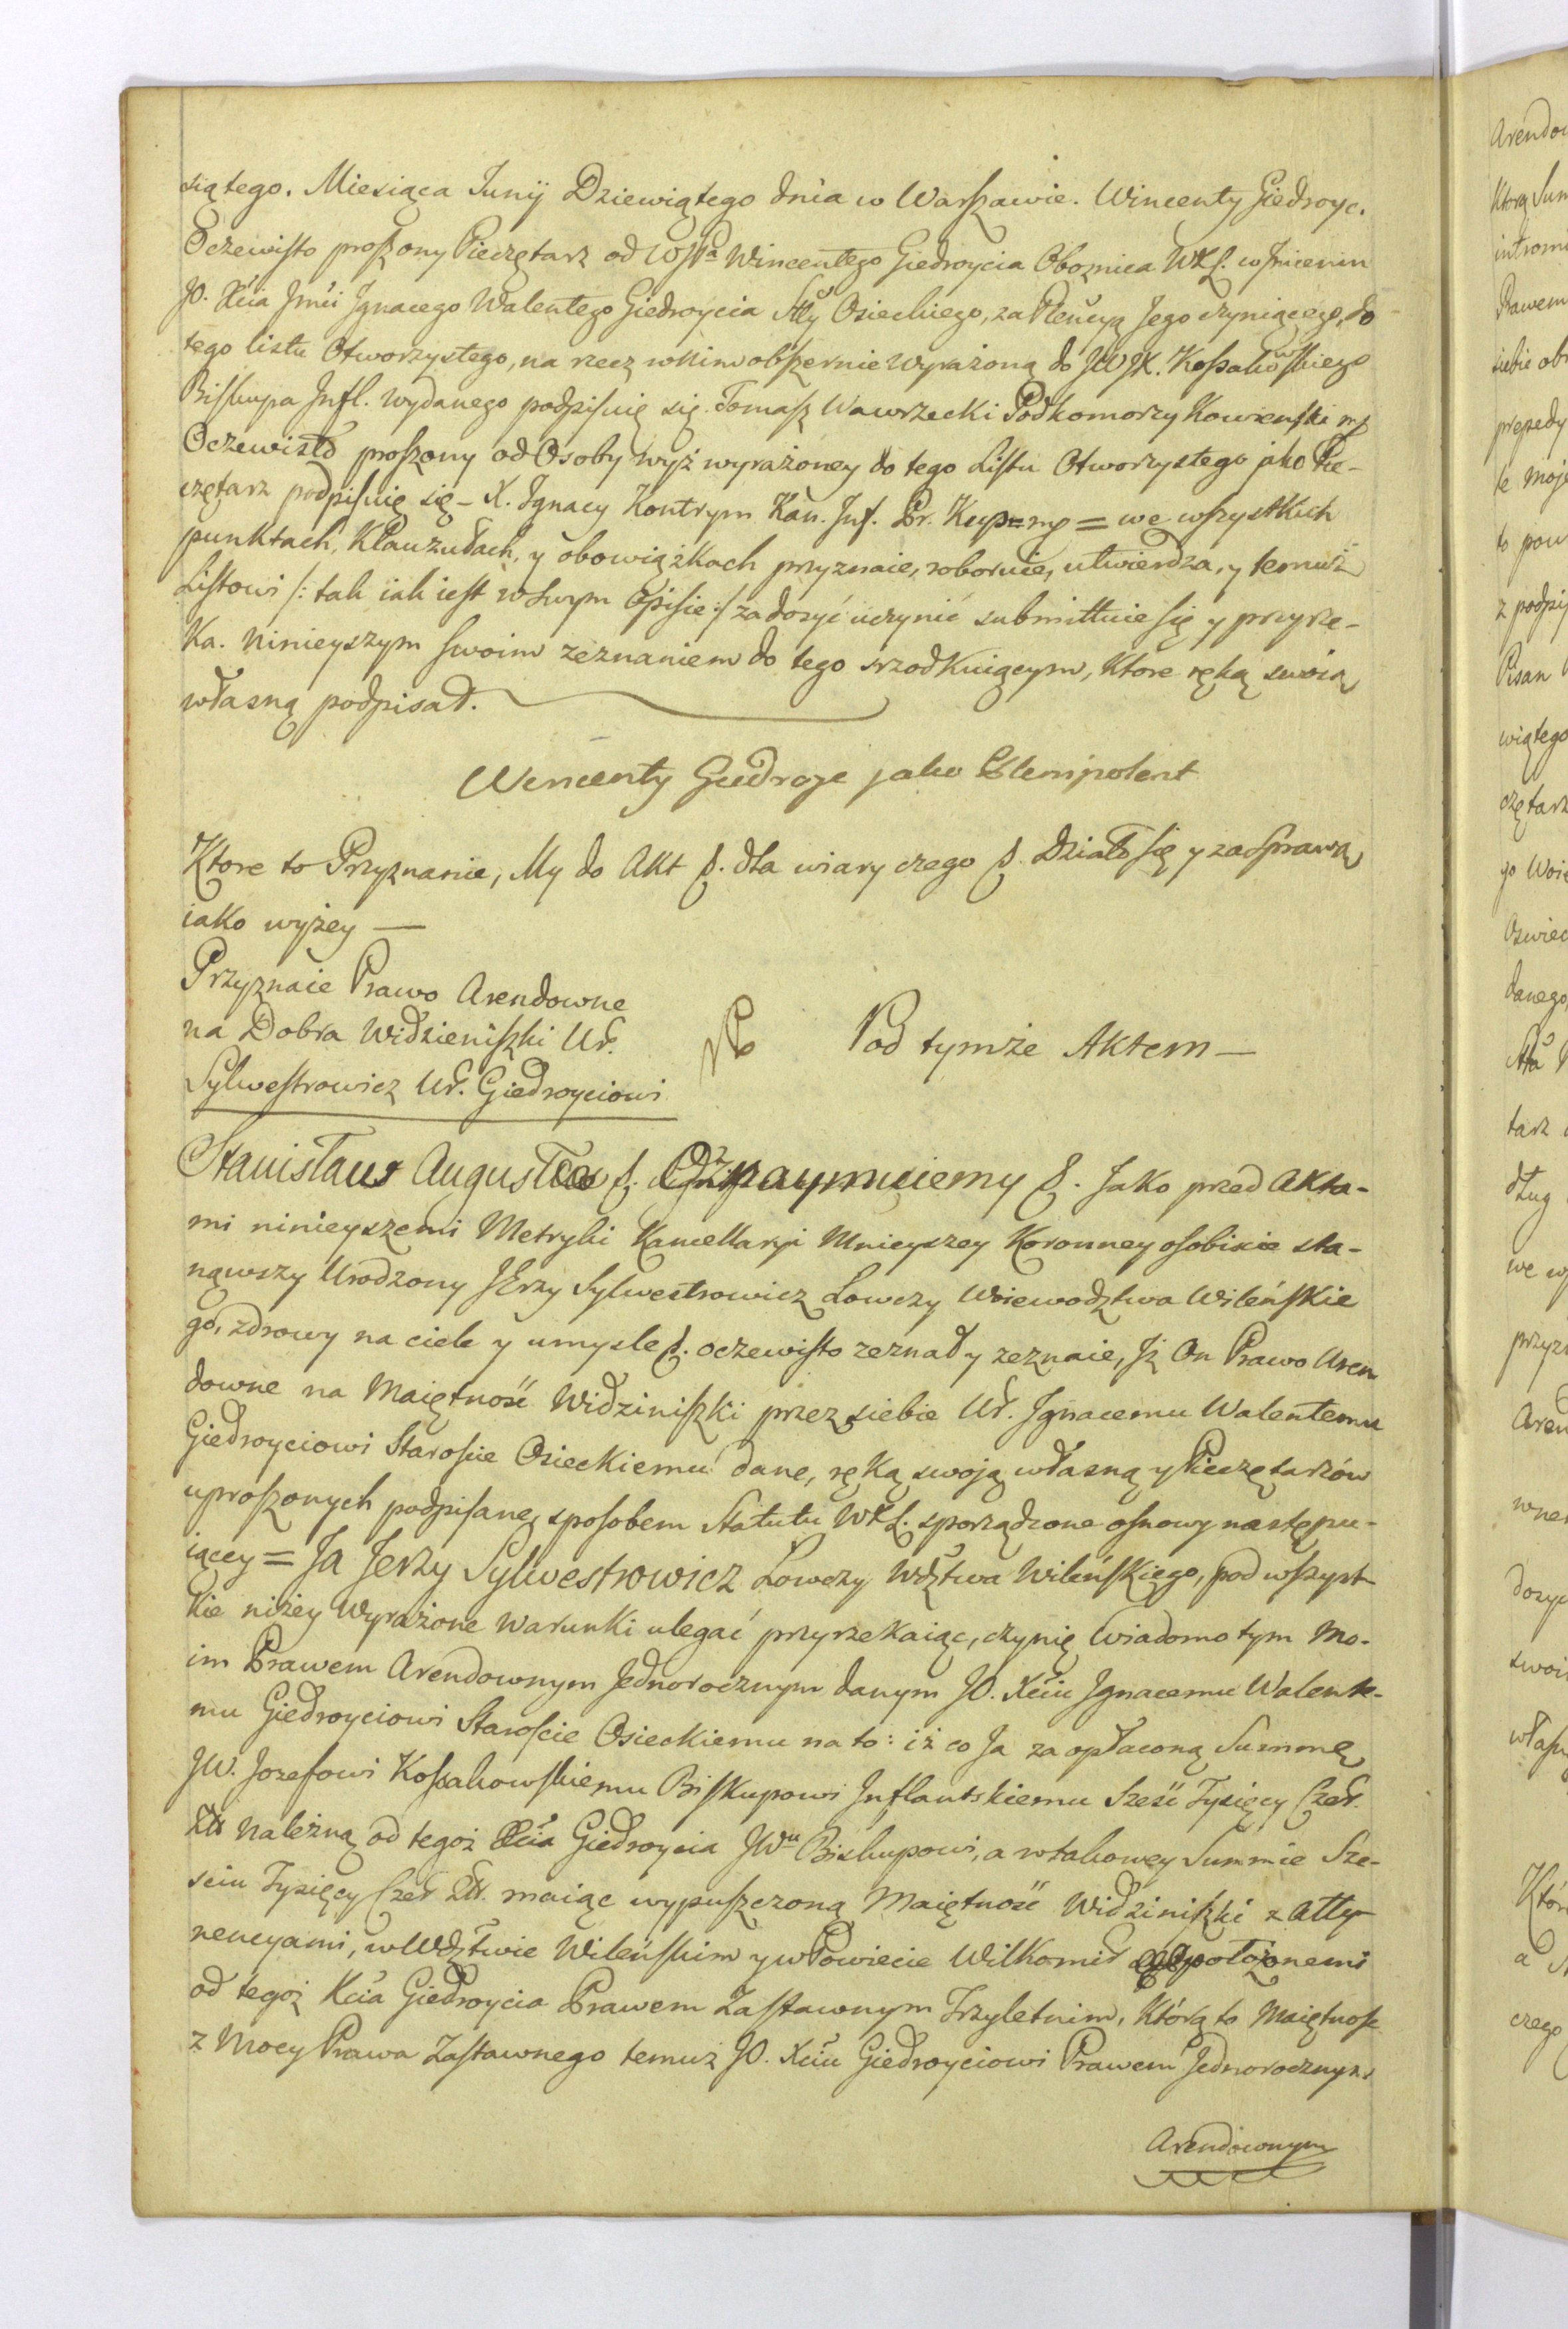 siątego. Miesiąca Junij Dziewiątego dnia w Warszawie. Wincenty Giedroyc.
Oczewisto proszony Pieczętarz od WJPa Wincentego Giedroycia Oboznica WXL. w Jmieniu
JO. Xcia Jmci Jgnacego Walentego Giedroycia Stty Osieckiego, za Plencyą Jego czyniącego, do
tego listu Otworzystego, na rzecz w nim obszernie wyrażoną do JWJX. Kossakowskiego
Biskupa Jnfl. wydanego podpisuię się. Tomasz Wawrzecki Podkomorzy Kowienski mp
Oczewisto proszony od Osoby wyż wyrażoney do tego Listu Otworzystego jako Pie-
czętarz podpisuię się - X. Ignacy Kontrym Kan. Jnf. Pr. Kup. mp = we wszystkich
punktach, Klauzułach, y obowiązkach przyznaie, roboruie, utwierdza, y temuż
Listowi /: tak iak iest w swym Opisie :/ zadosyć uczynić submittuie się y przyrze-
ka. Ninieyszym swoim zeznaniem do tego srzodkuiącym, ktore ręką swoią
własną podpisał.
Wincenty Giedroyc jako Plenipotent
Ktore to Przyznanie, My do Akt &. dla wiary czego &. Działo się y za sprawą
iako wyżey —
Przyznaie Prawo Arendowne
na Dobra Widzieniszki Ur.
Sylwestrowicz Ur. Giedroyciowi
Pod tymże Aktem —
Stanisław August &. Oznaymuiemy &. Jako przed Akta-
mi ninieyszemi Metryki Kancellaryi Mnieyszey Koronney osobiscie sta-
nąwszy Urodzony JErzy Sylwestrowicz Łowczy Woiewodztwa Wileńskie
go, zdrowy na ciele y umysle &. oczewisto zeznał y zeznaie, Jż On Prawo Aren
downe na Maiętność Widziniszki przez siebie Ur. Jgnacemu Walentemu
Giedroyciowi Staroscie Osieckiemu dane, ręką swoją własną y Pieczętarzów
uproszonych podpisane, sposobem Statutu WXL. sporządzone osnowy następu-
iącey = Ja Jerzy Sylwestrowicz Łowczy Wdztwa Wileńskiego, pod wszyst
kie niżey wyrażone warunki ulegać przyrzekaiąc, czynię wiadomo tym Mo-
im Prawem Arendownym Jednorocznym danym JO. Xciu Jgnacemu Walente-
mu Giedroyciowi Staroscie Osieckiemu na to: iż co Ja za opłaconą Summę
JW. Jozefowi Kossakowskiemu Biskupowi Jnflantskiemu Sześć Tysięcy Czer.
Złł należną od tegoż Xcia Giedroycia JWu Biskupowi, a w takowey Summie Sze-
sciu Tysięcy Czer Złł. maiąc wypuszczoną Maiętność Widziniszki z Atty-
nencyami, w Wdztwie Wileńskim y w Powiecie Wiłkomir położonemi
od tegoż Xcia Giedroycia Prawem Zastawnym Trzyletnim, Którą to Maiętność
z Mocy Prawa Zastawnego temuż JO. Xciu Giedroyciowi Prawem Jednorocznym
Arendownym